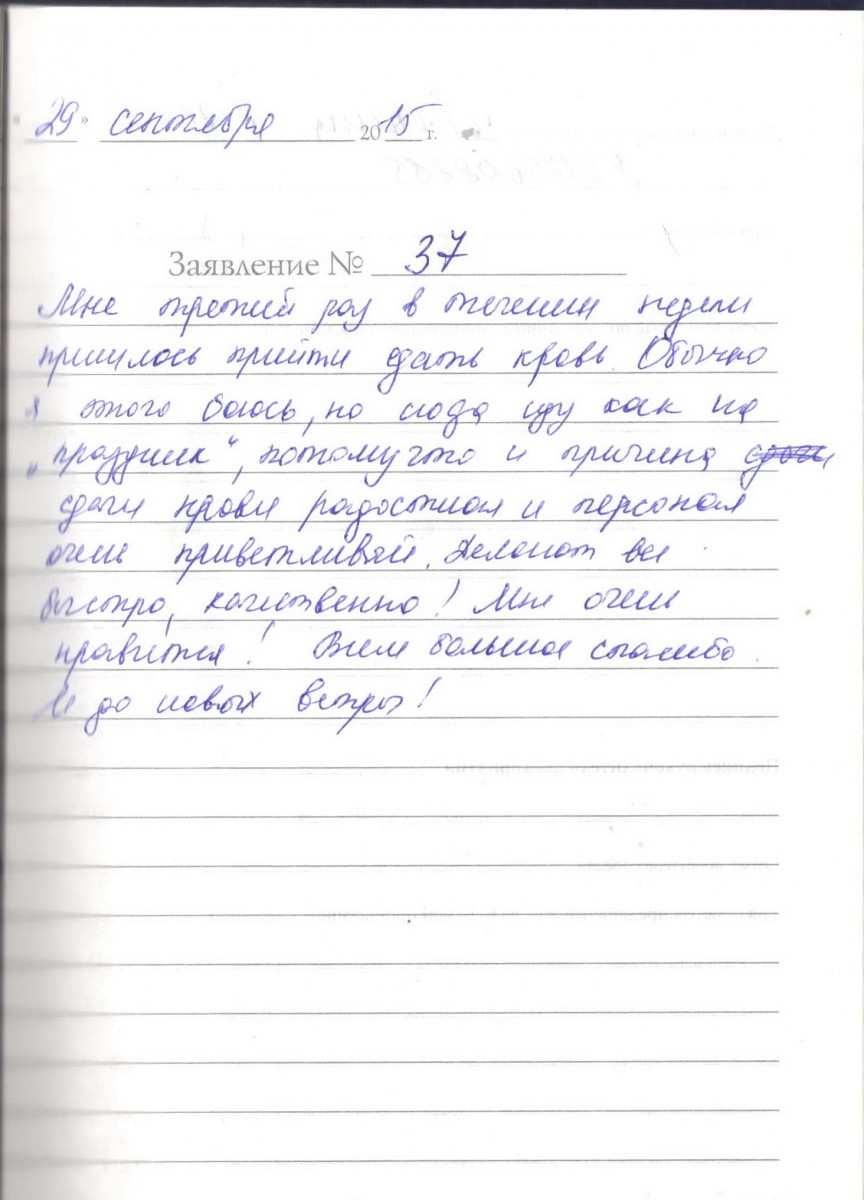 29» сентября 2015 г.
Заявление № 37
Мне третий раз в течении недели
пришлось прийти сдать кровь. Обычно
я этого боюсь, но сюда иду как на
„праздник“, потомучто и причина сдачи
сдачи крови радостная и персонал
очень приветливый. Делают все
быстро, качественно! Мне очень
нравится! Всем большое спасибо
и до новых встреч!